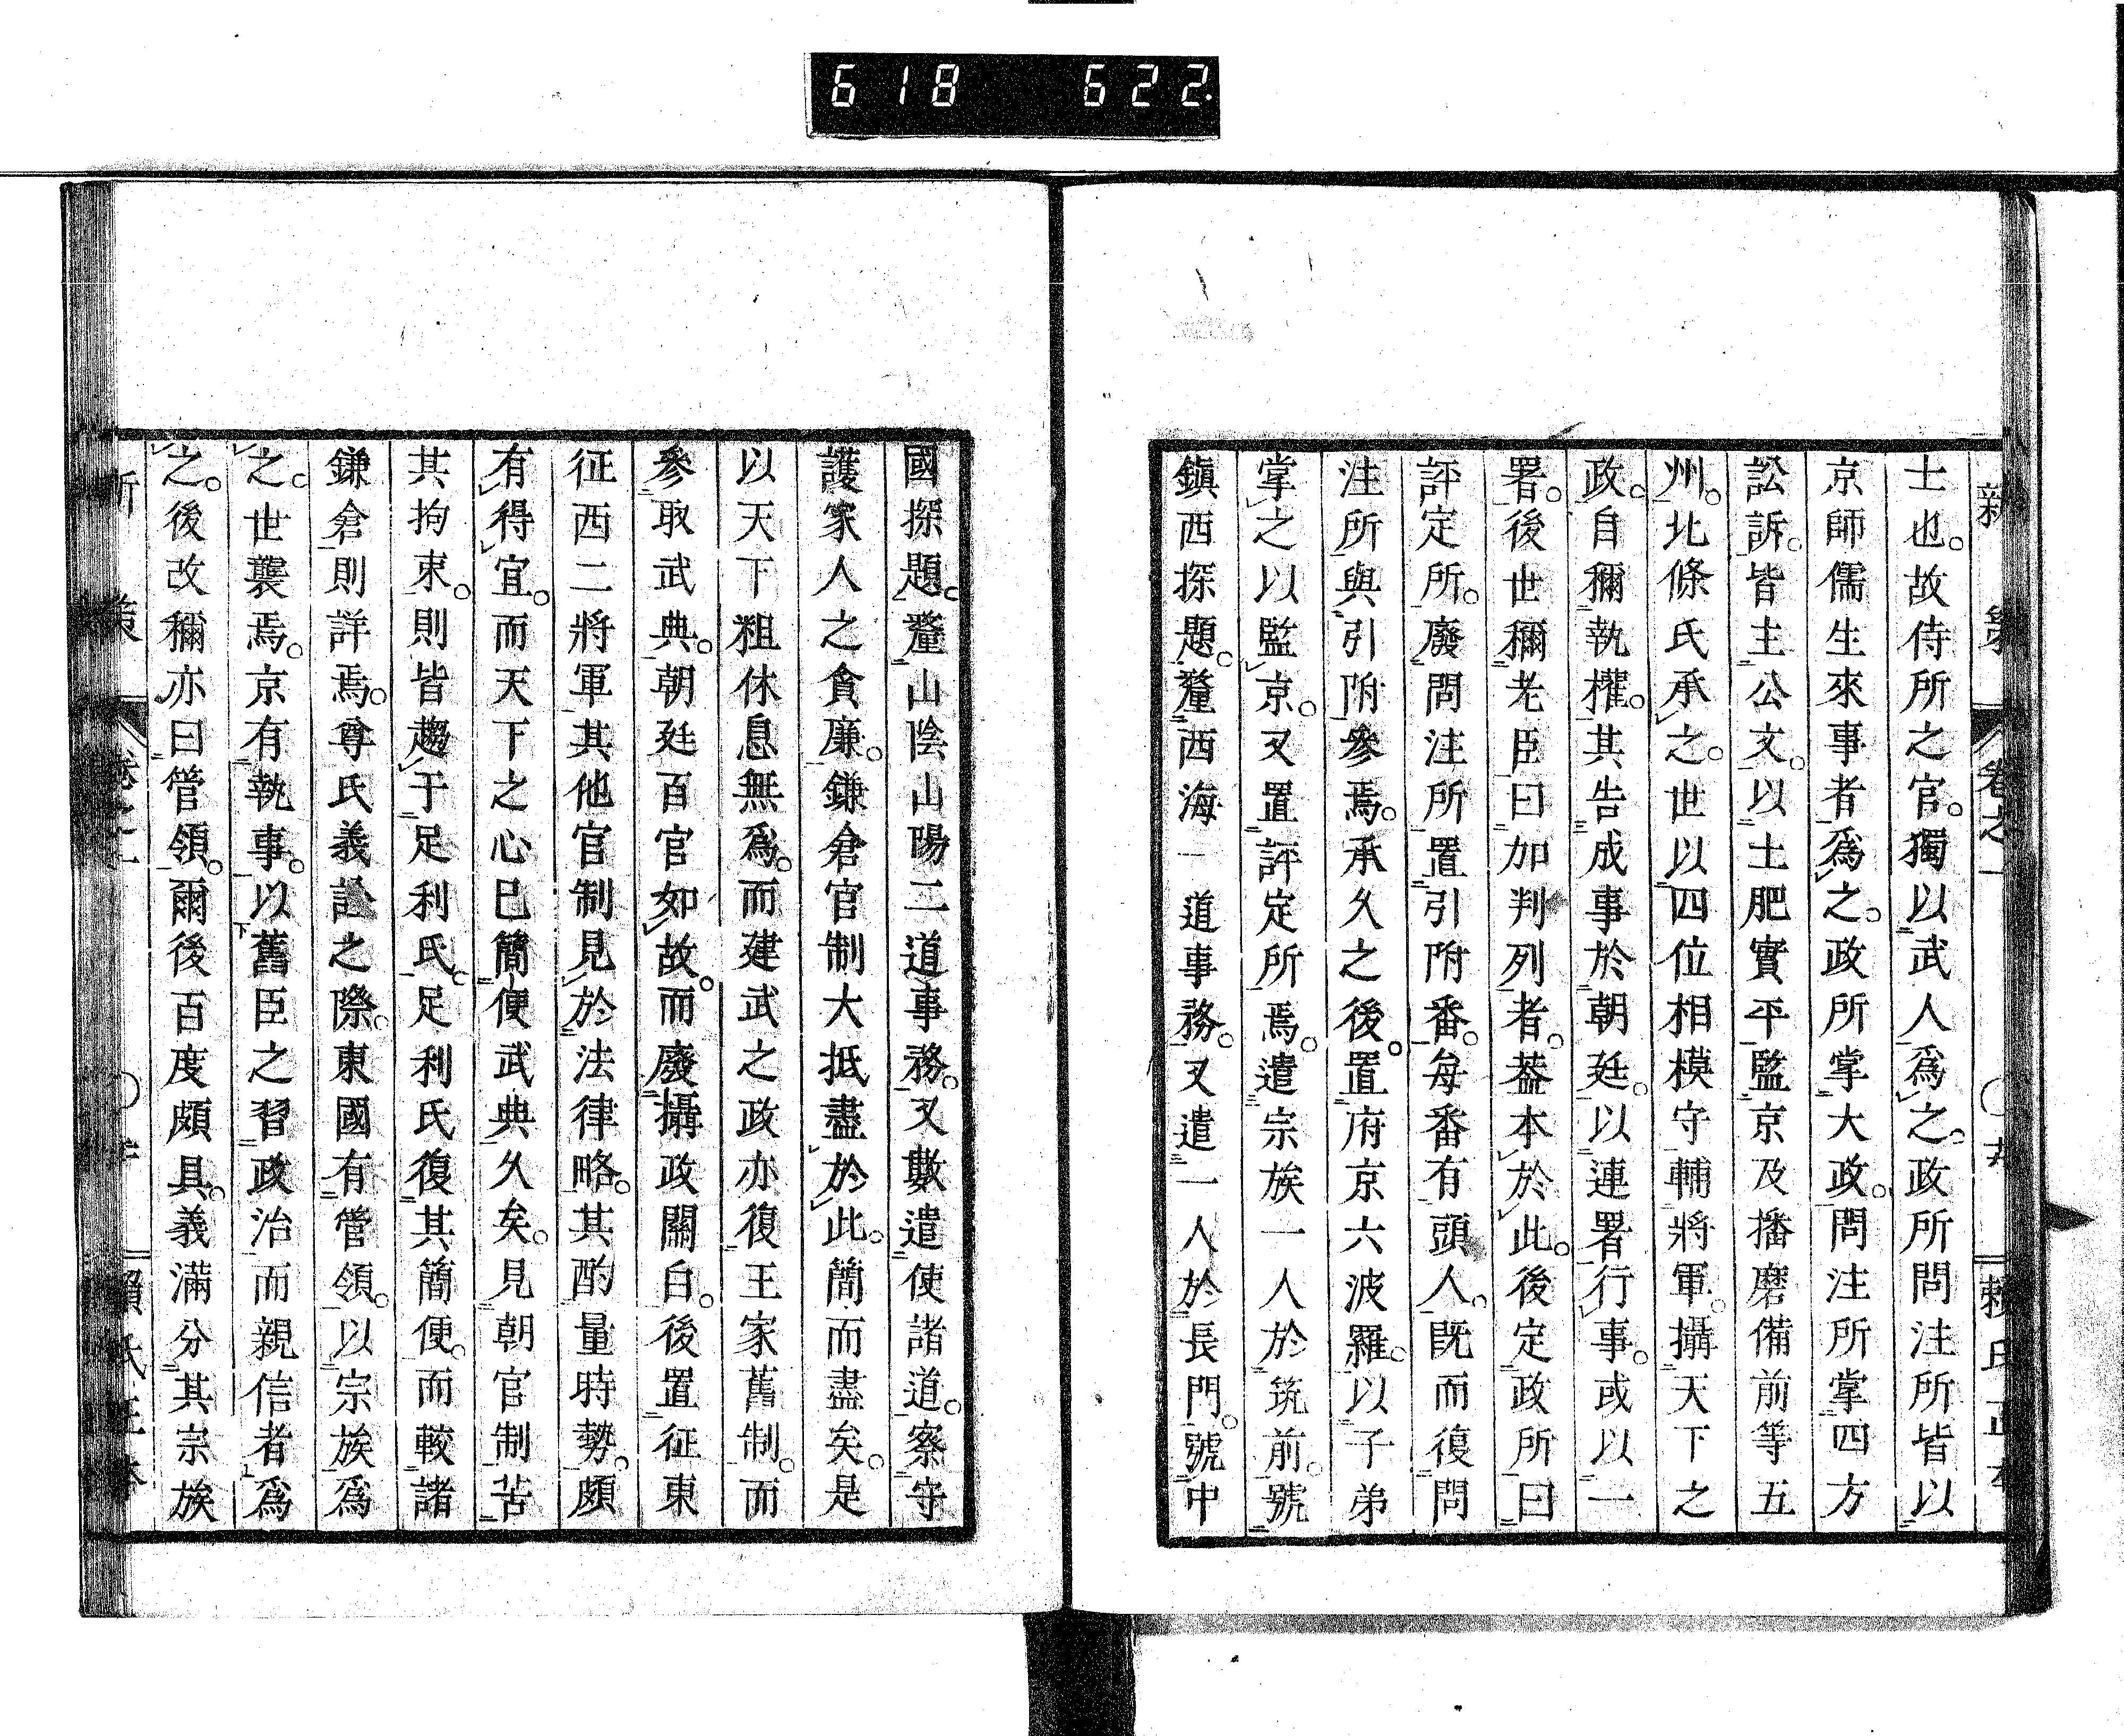 618 622
新策 卷之一 賴氏正本
士也。故侍所之官。獨以武人爲之。政所問注所皆以
京師儒生來事者爲之。政所掌大政。問注所掌四方
訟訴。皆主公文。以土肥實平監京及播磨備前等五
州。北條氏承之。世以四位相模守輔將軍。攝天下之
政。自稱執權。其告成事於朝廷。以連署行事。或以一
署。後世稱老臣曰加判列者。葢本於此。後定政所曰
評定所。廢問注所置引附番。每番有頭人。既而復問
注所與引附參焉。承久之後。置府京六波羅。以子弟
掌之以監京。又置評定所焉。遣宗族一人於筑前。號
鎭西探題。釐西海一道事務。又遣一人於長門。號中
國探題。釐山陰山陽二道事務。又數遣使諸道。察守
護家人之貪廉。鎌倉官制大抵盡於此。簡而盡矣。是
以天下粗休息無爲。而建武之政亦復王家舊制。而
參取武典。朝廷百官如故。而廢攝政關白。後置征東
征西二將軍其他官制見於法律略。其酌量時勢。頗
有得宜。而天下之心已簡便武典久矣。見朝官制苦
其拘束。則皆趨于足利氏。足利氏復其簡便。而較諸
鎌倉則詳焉。尊氏義詮之際。東國有管領。以宗族爲
之。世襲焉。京有執事。以舊臣之習政治而親信者爲
之。後改稱亦曰管領。爾後百度頗具。義滿分其宗族